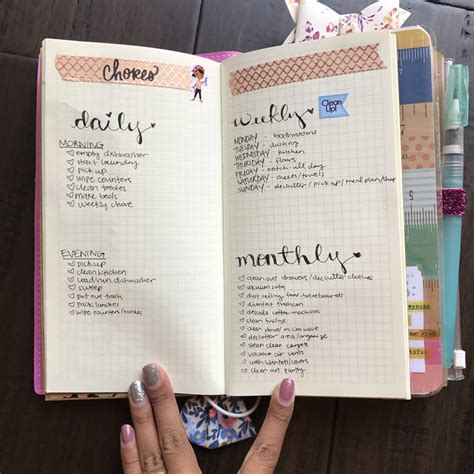 chores
daily
MORNING
empty dishwasher
start laundry
pick up
wipe counters
clean toilets
make beds
weekly chore
EVENING
pick up
clean kitchen
load/run dishwasher
sweep
put out trash
pack lunches
wipe counters/tables
weekly
Clean Up!
MONDAY - bathrooms
TUESDAY - dusting
WEDNESDAY - kitchen
THURSDAY - floors
FRIDAY - catch-all day
SATURDAY - sheets/towels
SUNDAY - declutter / pick up / meal plan/shop
monthly
clean out drawers/declutter clothes
vacuum sofa
dust ceiling fans/baseboards
disinfect trashcan
descale coffee machine
clean fridge
clean stove/microwave
declutter area/organize
steam clean carpets
vacuum car vents
wash blankets/covers
clean out pantry